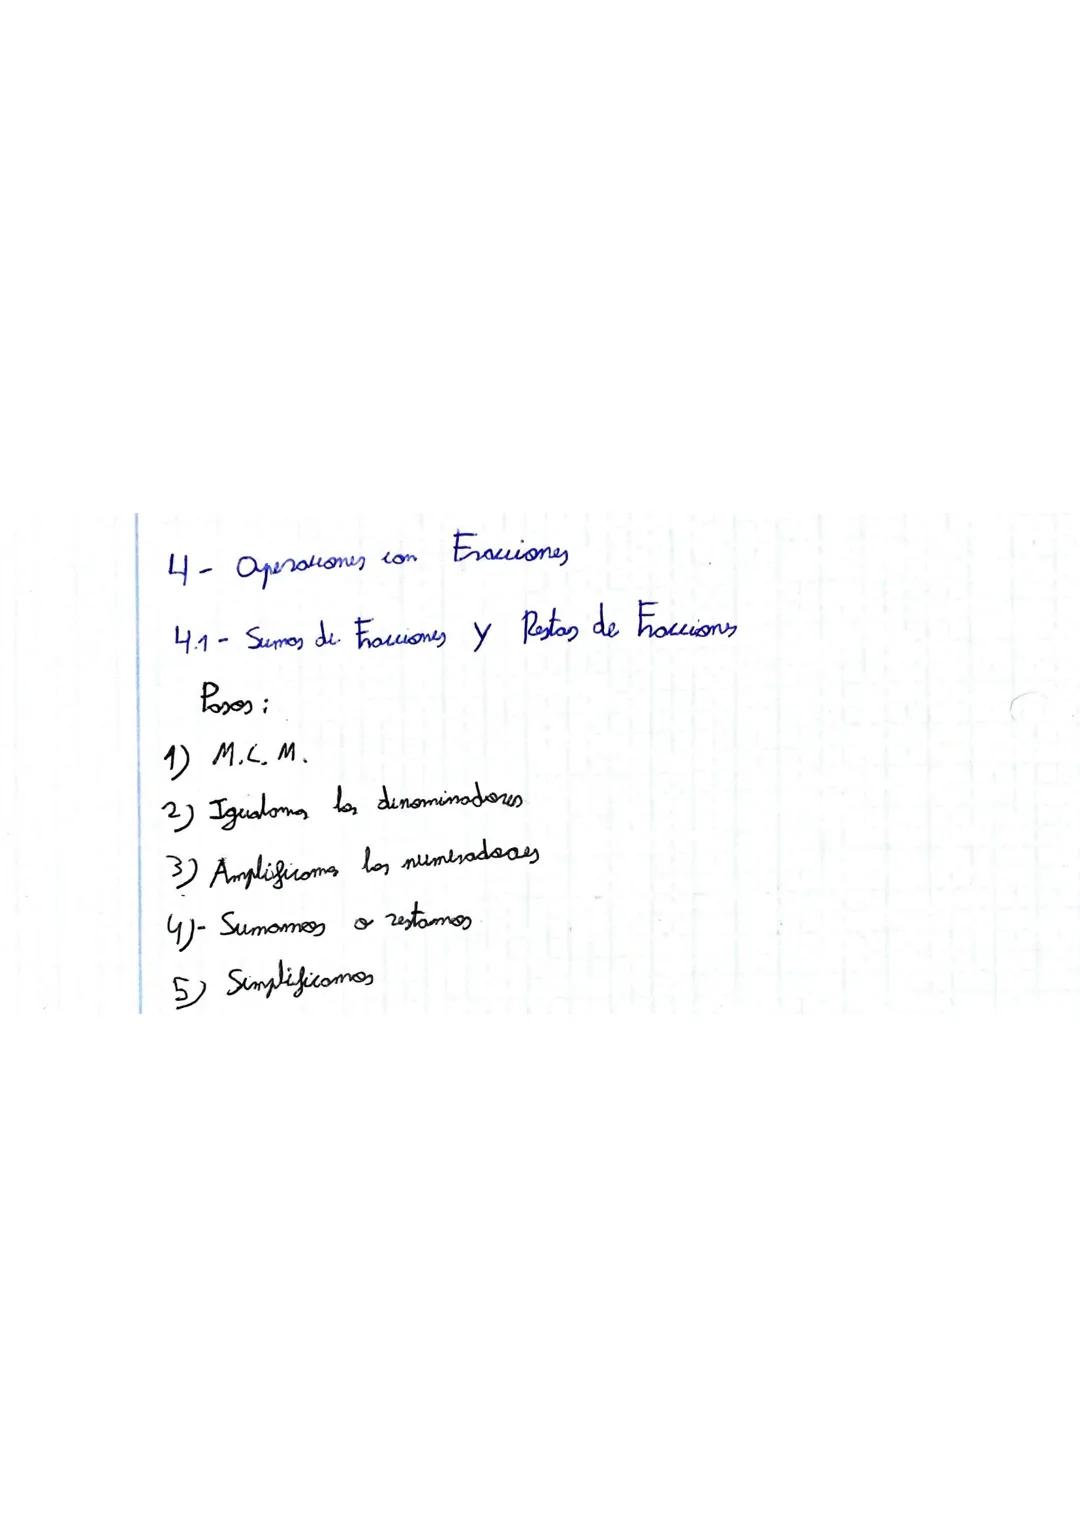 4- Operaciones con Fracciones
4.1- Sumas de Fracciones y Restas de Fracciones
Pasos:
1) M.C.M.
2) Igualamos los denominadores
3) Amplificamos los numeradores
4)- Sumamos o restamos
5) Simplificamos